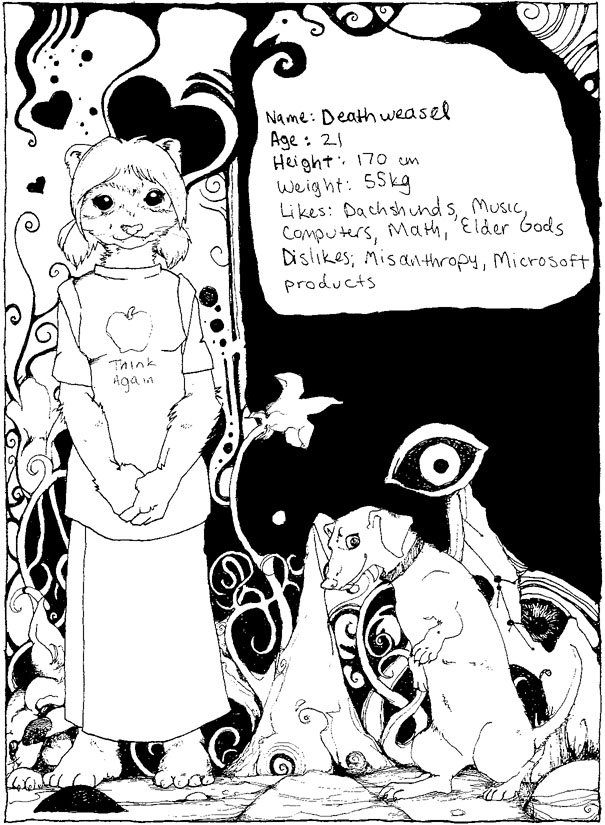 Name: Deathweasel
Age: 21
Height: 170 cm
Weight: 55kg
Likes: Dachshunds, Music,
Computers, Math, Elder Gods
Dislikes; Misanthropy, Microsoft
products
Think
Again